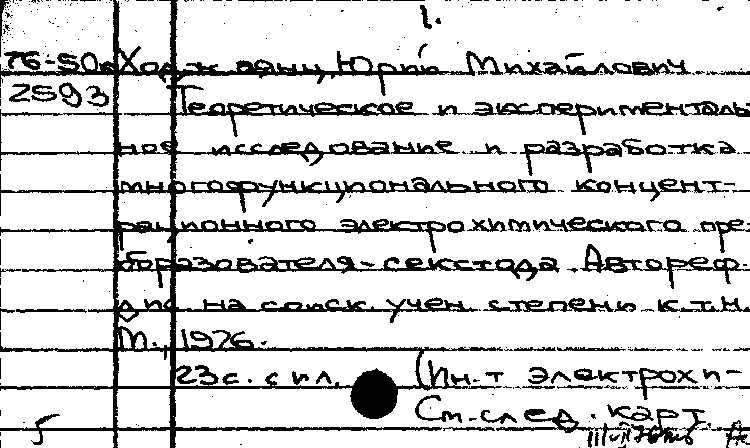 1.
76-50а Ходжаянц, Юрий Михайлович
2593 Теоретическое и эксперименталь
ное исследование и разработка
многофункционального концент-
рационного электрохимического пре-
образователя-секстода. Автореф.
дис на соиск. учен. степени к.т.н.
М., 1976.
23с. с ил. (Ин-т электрохи-
См. след. карт.
5